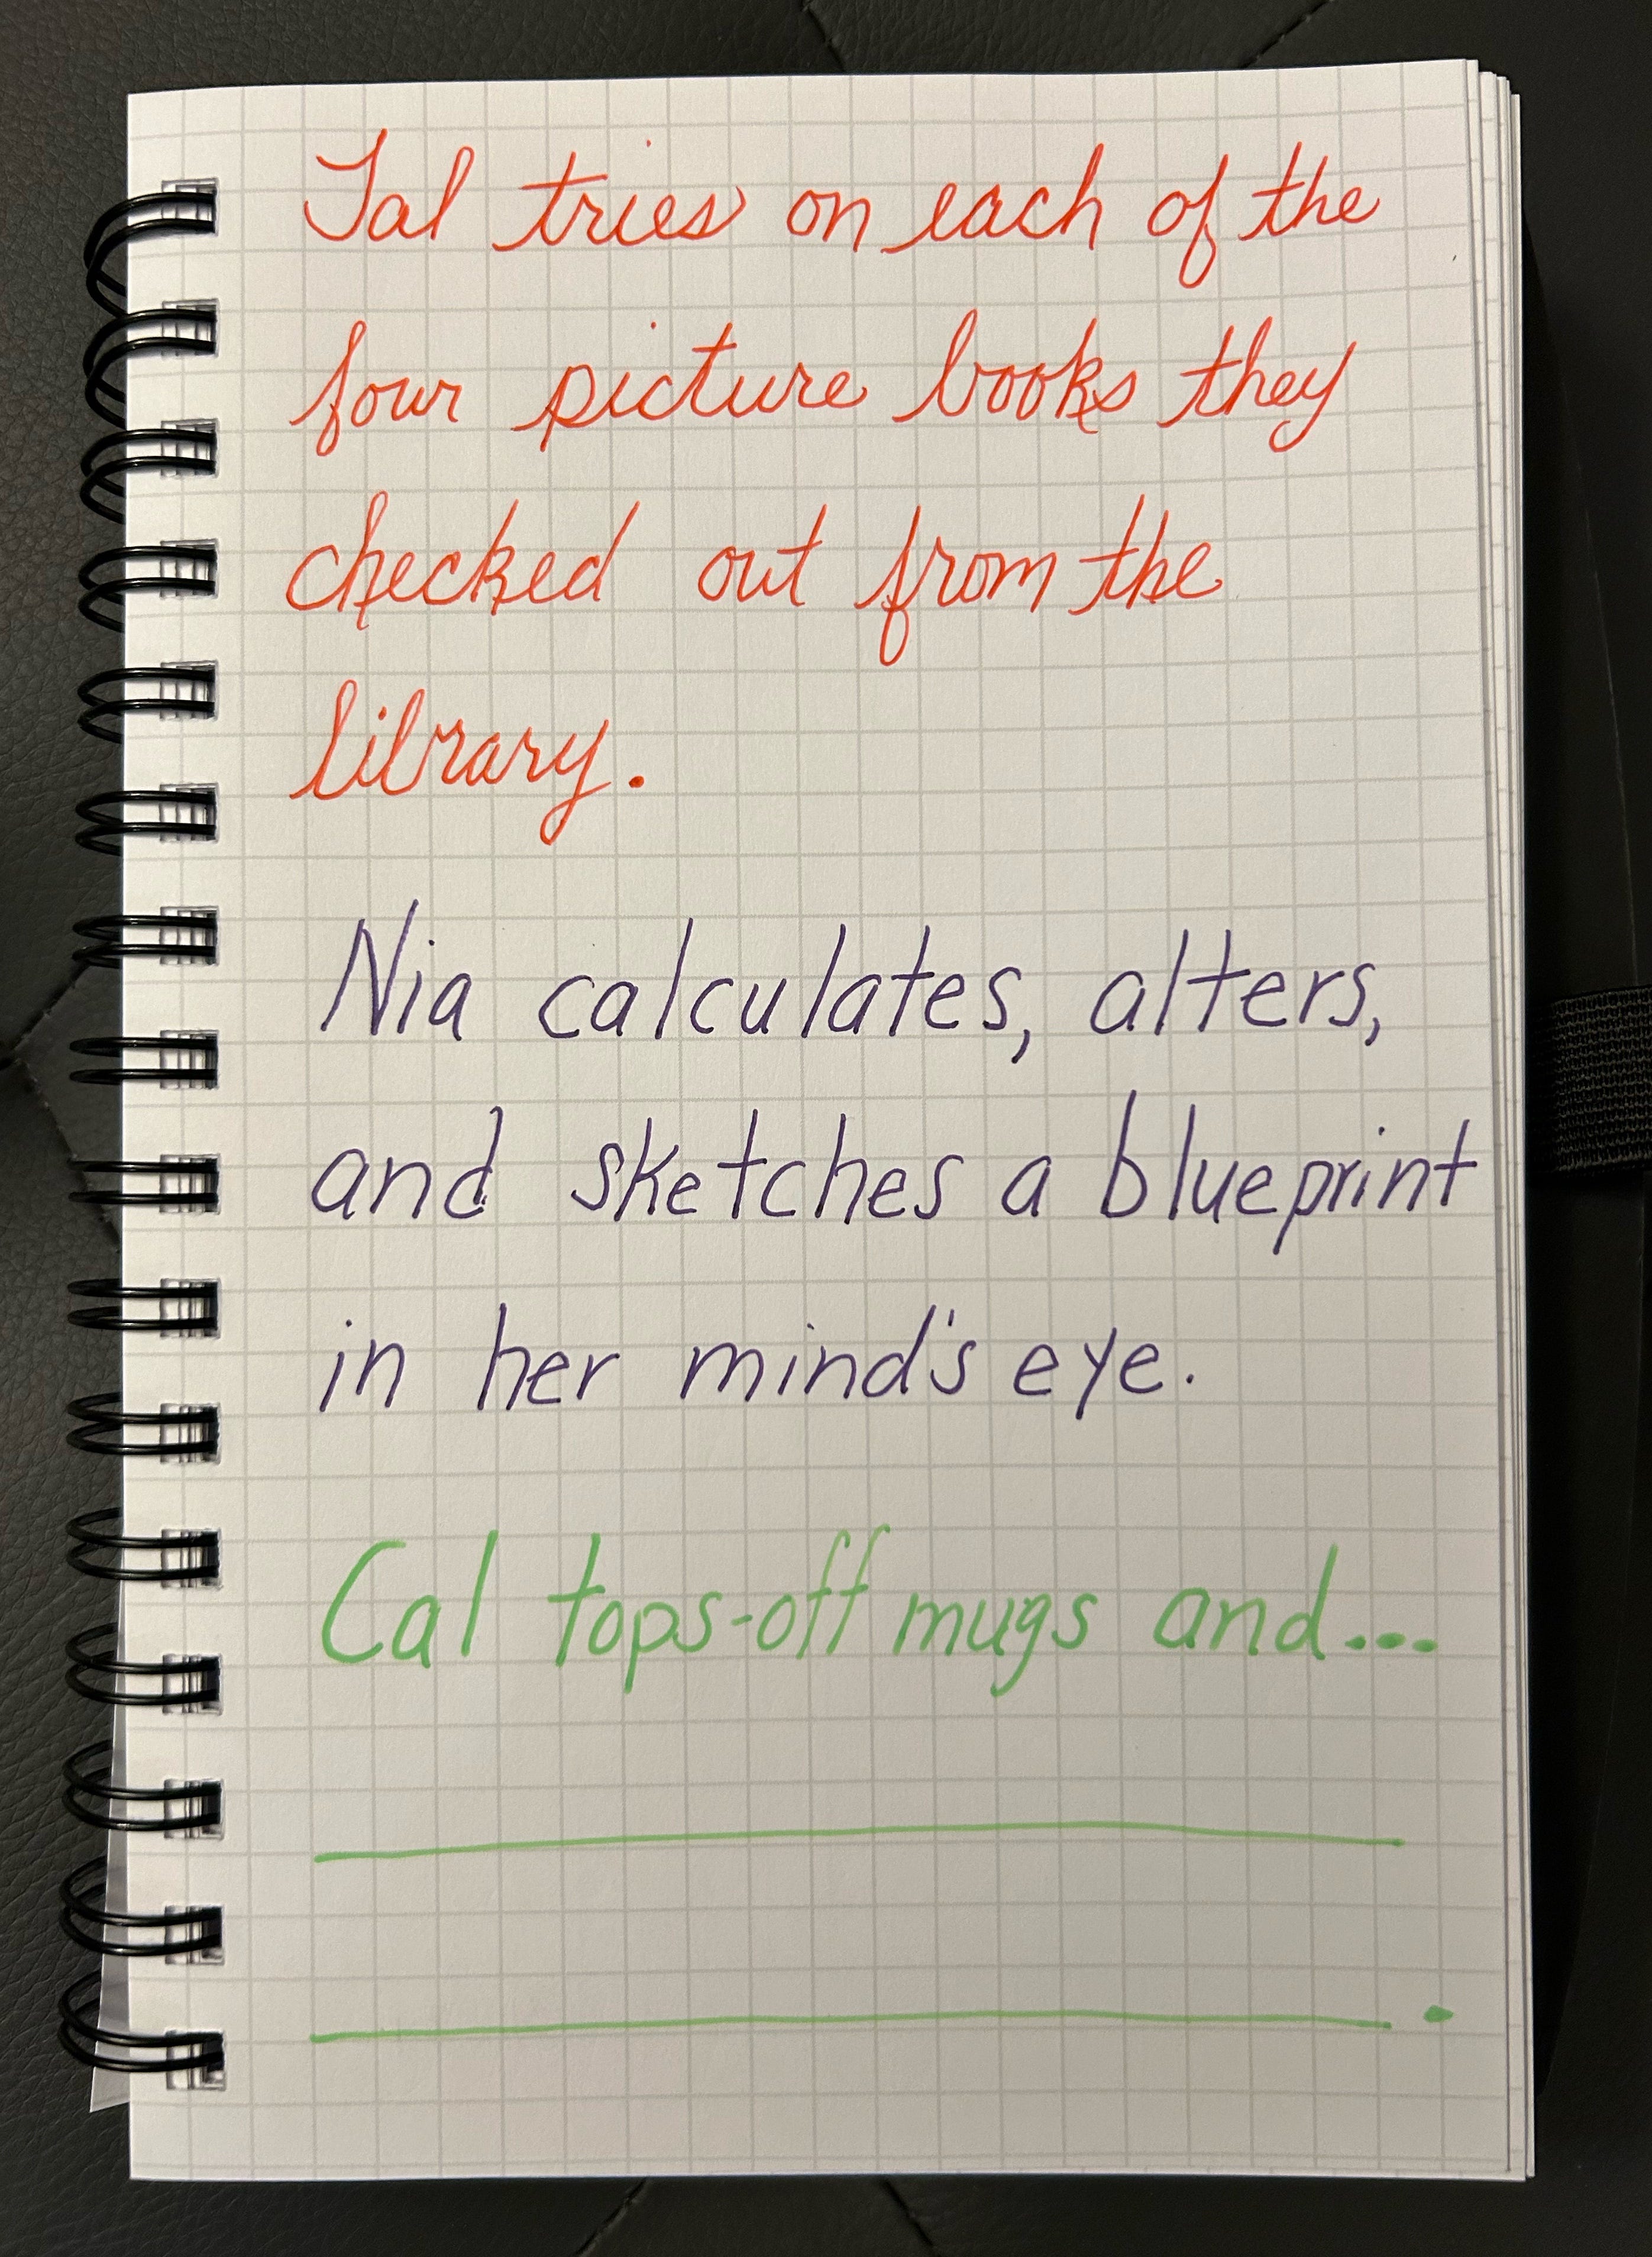 Tal tries on each of the
four picture books they
checked out from the
library.
Nia calculates, alters,
and sketches a blueprint
in her mind's eye.
Cal tops-off mugs and...